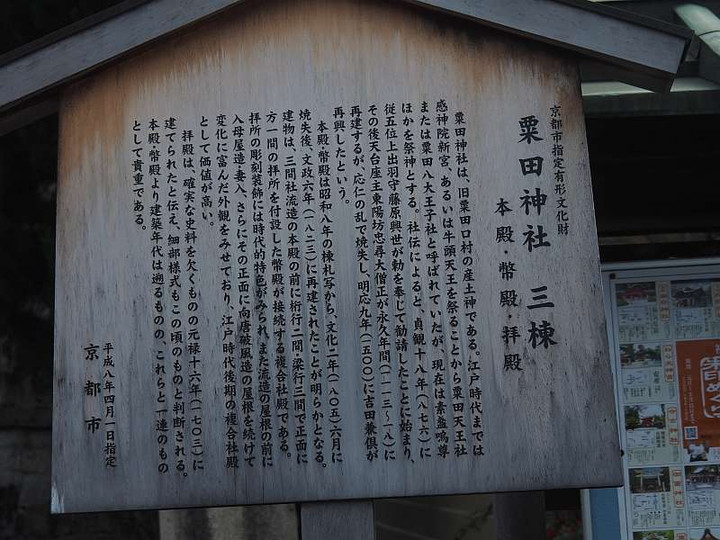 京都市指定有形文化財
粟田神社 三棟
本殿・幣殿・拝殿
粟田神社は、旧粟田口村の産土神である。江戸時代までは
感神院新宮、あるいは牛頭天王を祭ることから粟田天王社
または粟田八大王子社と呼ばれていたが、現在は素盞嗚尊
ほかを祭神とする。社伝によると、貞観十八年(八七六)に
従五位上出羽守藤原興世が勅を奉じて勧請したことに始まり、
その後天台座主東陽坊忠尋大僧正が永久年間(一一一三〜一八)に
再建するが、応仁の乱で焼失し、明応九年(一五〇〇)に吉田兼倶が
再興したという。
本殿・幣殿は昭和八年の棟札写から、文化二年(一八〇五)六月に
焼失後、文政六年(一八二三)に再建されたことが明らかとなる。
建物は、三間社流造の本殿の前に桁行二間・梁行三間で正面に
方一間の拝所を付設した幣殿が接続する複合社殿である。
拝所の彫刻装飾には時代的特色がみられ、また流造の屋根の前に
入母屋造・妻入、さらにその正面に向唐破風造の屋根を続けて
変化に富んだ外観をみせており、江戸時代後期の複合社殿
として価値が高い。
拝殿は、確実な史料を欠くものの元禄十六年(一七〇三)に
建てられたと伝え、細部様式もこの頃のものと判断される。
本殿・幣殿より建築年代は遡るものの、これらと一連のもの
として貴重である。
平成八年四月一日指定
京都市